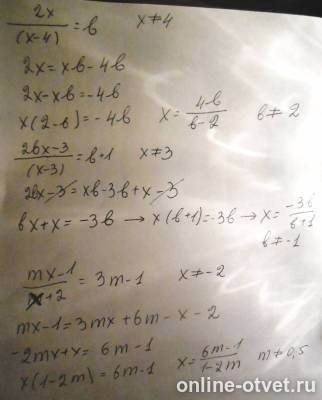 2x/(x-4) = b   x ≠ 4
2x = xb - 4b
2x - xb = -4b
x(2-b) = -4b   x = 4b/(b-2)   b ≠ 2
(2bx-3)/(x-3) = b+1   x ≠ 3
2bx - 3 = xb - 3b + x - 3
bx + x = -3b → x(b+1) = -3b → x = -3b/(b+1)
b ≠ -1
(mx-1)/(x+2) = 3m-1   x ≠ -2
mx-1 = 3mx + 6m - x - 2
-2mx + x = 6m - 1
x(1-2m) = 6m-1   x = (6m-1)/(1-2m)   m ≠ 0,5
online-otvet.ru